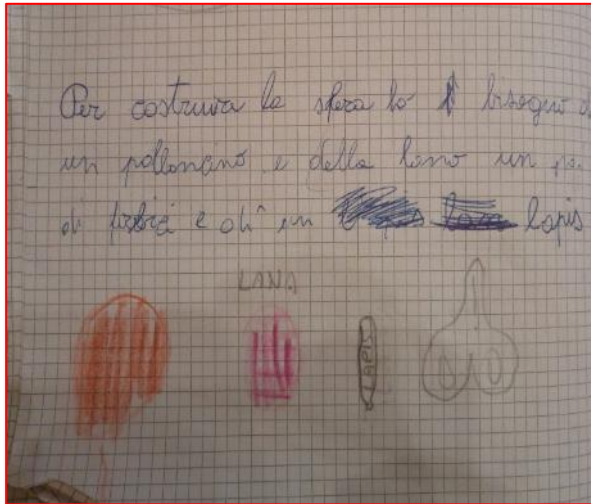 Per costruira la sfera ho bisogno d
un palloncino e della lana un pa
di forbici e di un lapis
LANA
LAPIS